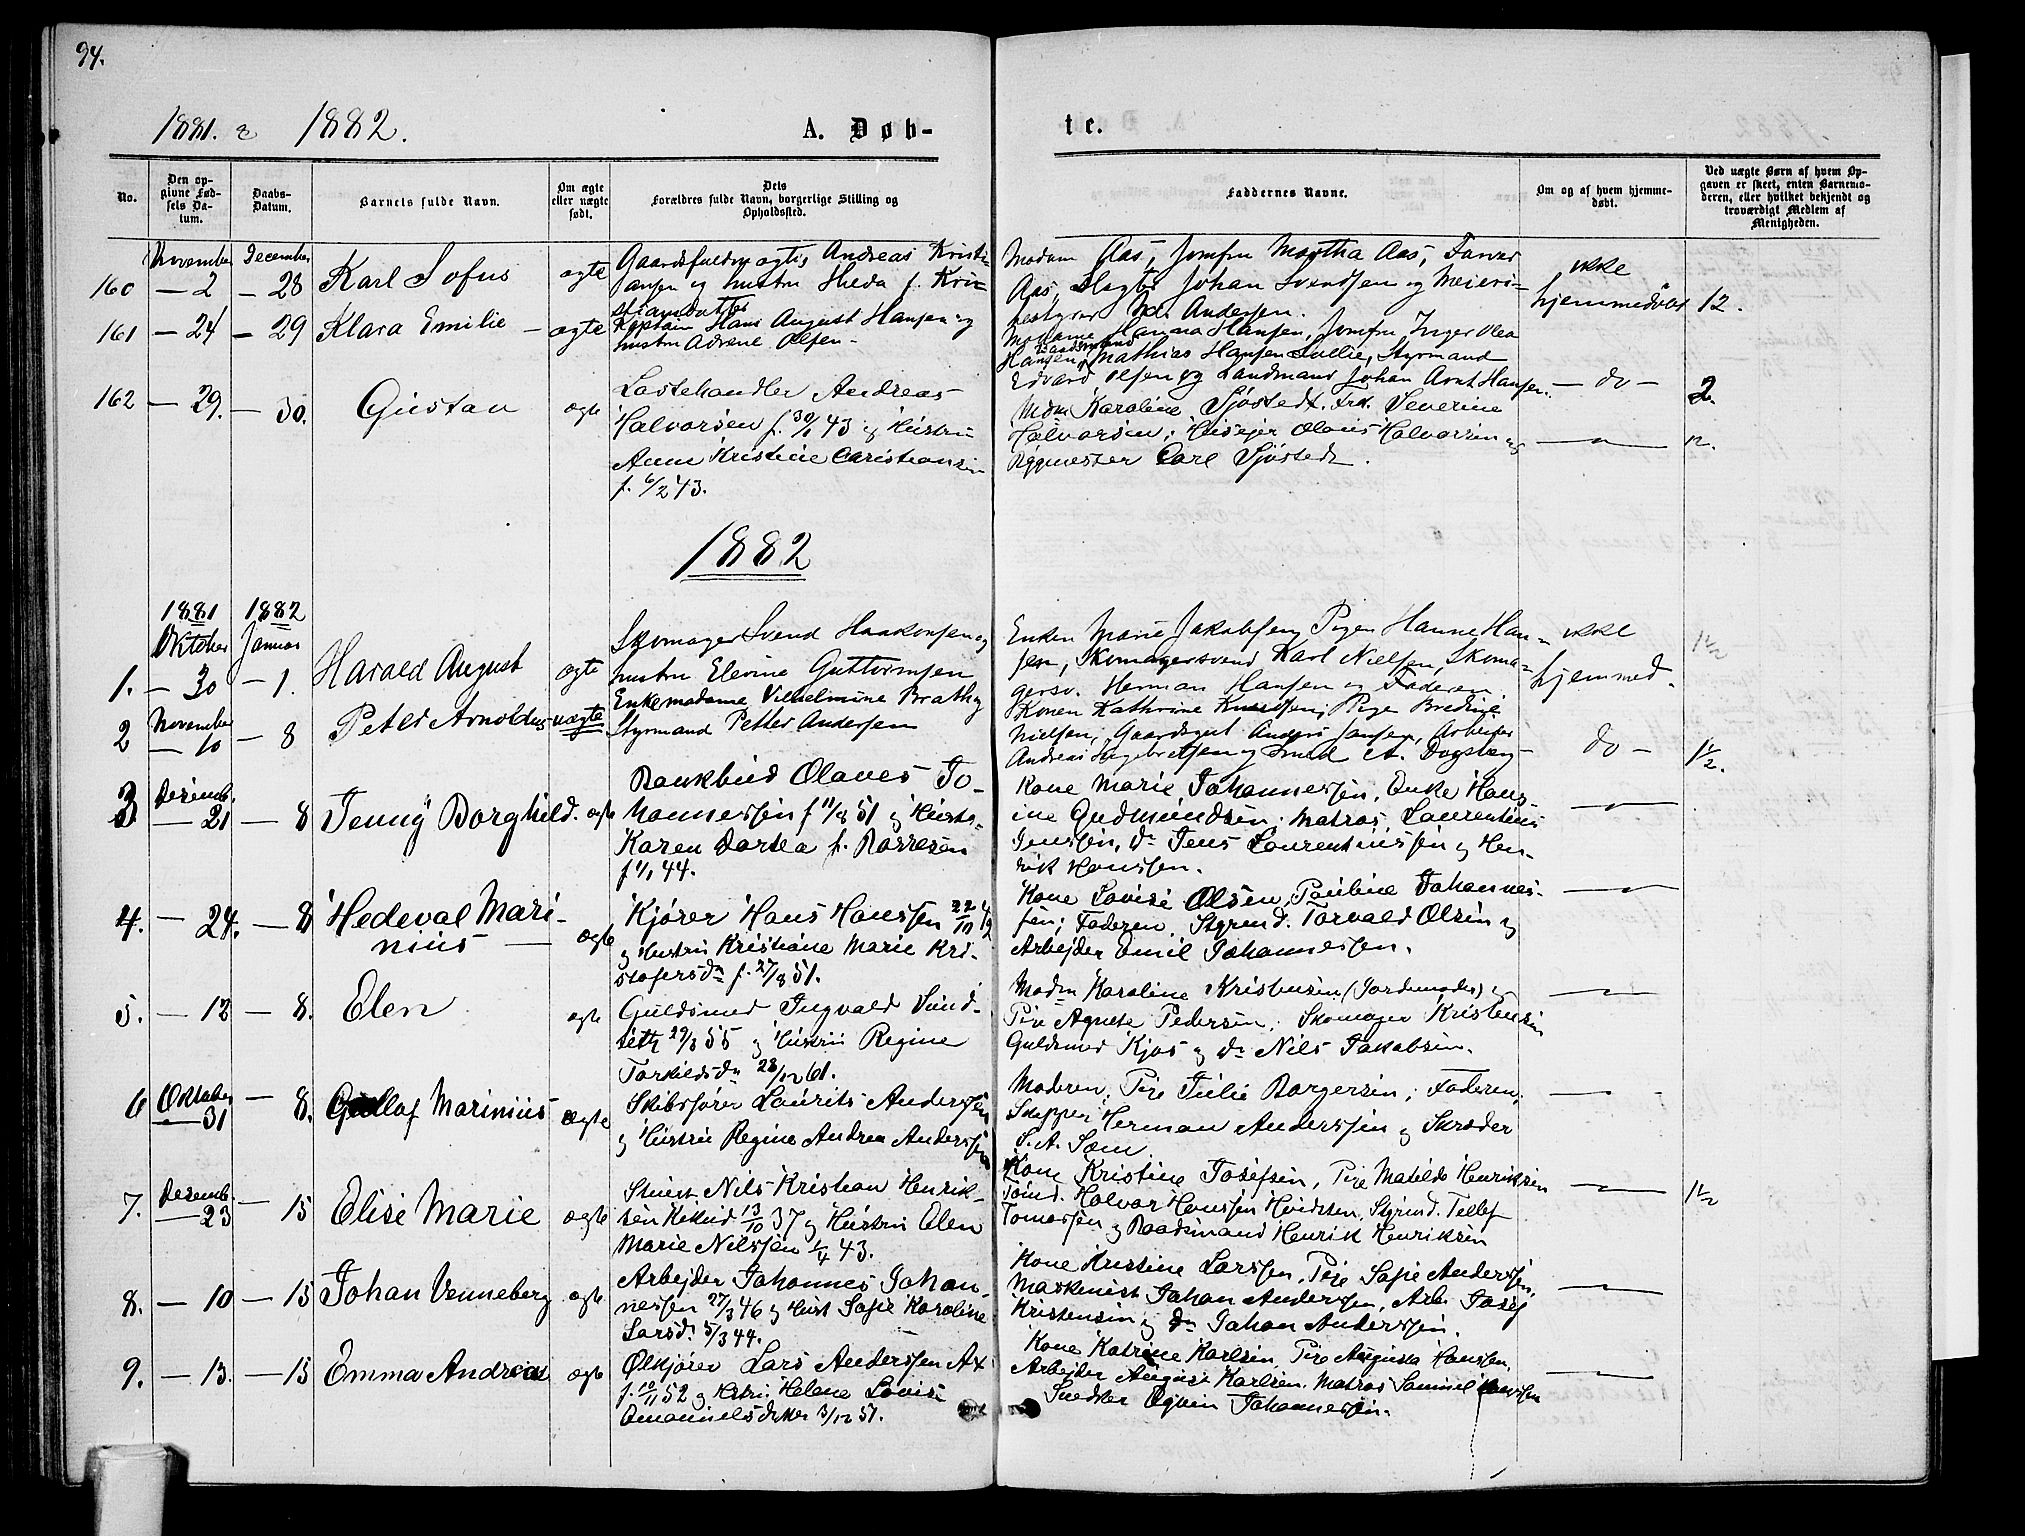 94.
1881. & 1882.
A. Døb-
te.
No.
Den op-
givne Fød-
sels Da-
tum.
Daabs-
Datum.
Barnets fulde Navn.
Om ægte
eller uægte
født.
Dets
Forældres fulde Navn, borgerlige Stilling og
Opholdssted.
Faddernes Navne.
Om og af hvem hjemme-
døbt.
Ved uægte Børn af hvem Op-
gaven er skeet, enten Barnemo-
deren, eller hvilket bekjendt og
troværdigt Medlem af
Menigheden.
November December
160 — 2 — 28 Karl Sofus ægte
Andreas Kristi-
ansen og hustru Heda f. Kri-
stiansdatter
Madam Aas, Jomfru Martha Aas, Farver
Aas, Johan Svendsen og Meieri-
bestyrer Andersen.
ikke
hjemmedøbt 12.
161 — 24 — 29 Klara Emilie — ægte
Kaptain Hans August Hansen og
hustru Olsen —
Madame Hanna Hansen, Jomfru Inger Olea
Hansen, Mathias Hansen Lullie, Styrmand
Edvard Olsen og Landmand Johan Arnt Hansen.
— do — 2.
162 — 29. — 30. Gustav ægte
Lastehandler Andreas
Halvorsen f. 30/1 43 og Hustru
Anne Kristine Christiansen
f. 6/2 43.
Mdm Karoline Sjøstedt. Frk. Severine
Halvorsen; Husejer Olaus Halvorsen og
Rigmester Carl Sjøstedt.
1882
1881 1882
Oktober Januar
1. — 30 — 1. Harald August ægte
Skomager Svend Haakonsen og
hustru Elevine Guttormsen
Enken Marie Jakobsen, Pigen Hanne Han-
sen, Skomagersvend Karl Nielsen, Skoma-
gersv. Herman Hansen og Faderen.
ikke
hjemmed. 1 1/2
November
2 — 10 — 8 Peter Arnoldus uægte
Enkemadame Vilhelmine Brathy
Styrmand Petter Andersen
Konen Kathrine Knudsen; Pige Bredine
Nielsen; Gaardsgut Anders Jansen, Arbeider
Andreas Ingebretsen og Smed A. Dogsberg —
do — 1/2.
Desemb.
3 — 21 — 8 Jenny Borghild. ægte
Bankbud Olaves Jo-
hannessen f 11/8 51 og Hustru
Karen Dortea f. Borresen
f 1/1 44.
Kone Marie Johannessen. Enke Hans-
ine Gudmundsen; Matros Laurentius
Jenssen, do Jens Laurentiussen og Hen-
rik Hanssen.
4. — 24. — 8 Hedeval Mari-
nius — ægte
Kjører Hans Hanssen 22/10 42
og Hustru Kristiane Marie Kri-
stofersdr f. 27/8 51.
Kone Lovise Olsen, Pauline Johannes-
sen; Faderen, Styrmd. Torvald Olsen og
Arbejder Emil Johannessen.
5. — 12 — 8. Elen ægte
Guldsmed Ingvald Sund-
seth 29/3 55 og Hustru Regine
Torkildsdr 28/12 61.
Madm Karoline Kristensen (Jordemoder)
Pige Agnete Pedersen; Skomager Kristensen
Guldsmed Kjøs og do Nils Jakobsen.
Oktober
6 — 31 — 8. Gullaf Marinius ægte
Skibsfører Laurits Anderssen
og Hustru Regine Andrea Anderssen
Moderen; Pige Julie Borgersen; Faderen;
Skipper Herman Anderssen og Skræder
S. A. Sem
Desemb.
7. — 23 — 15 Elise Marie ægte
Stuert Nils Kristian Henrik-
sen 13/10 37 og Hustru Elen
Marie Nilssen 1/4 43.
Kone Kristine Josefsen, Pige Matilde Henriksen
Tømd. Halvor Hanssen Hvidsten, Styrmd. Tellef
Tomassen og Baadsmand Henrik Henriksen
1 1/2
8. — 10 — 15 Johan Venneberg ægte
Arbejder Johannes Johan-
nessen 27/3 46 og Hust Sofie Karoline
Larsdr. 5/3 44.
Kone Kristine Larssen, Pige Sofie Anderssen,
Maskinist Johan Anderssen, Arb. Josef
Kristensen og do Johan Anderssen.
9. — 13. — 15 Emma Andrea ægte
Ølkjører Lars Anderssen Ax
f. 10/11 52 og Hstru. Helene Lovise
Emanuelsdatter 3/12 51.
Kone Katrine Karlsen, Pige Augusta Hanssen,
Arbejder August Karlsen, Matros Samuel Hanssen
Snedker Johannessen.